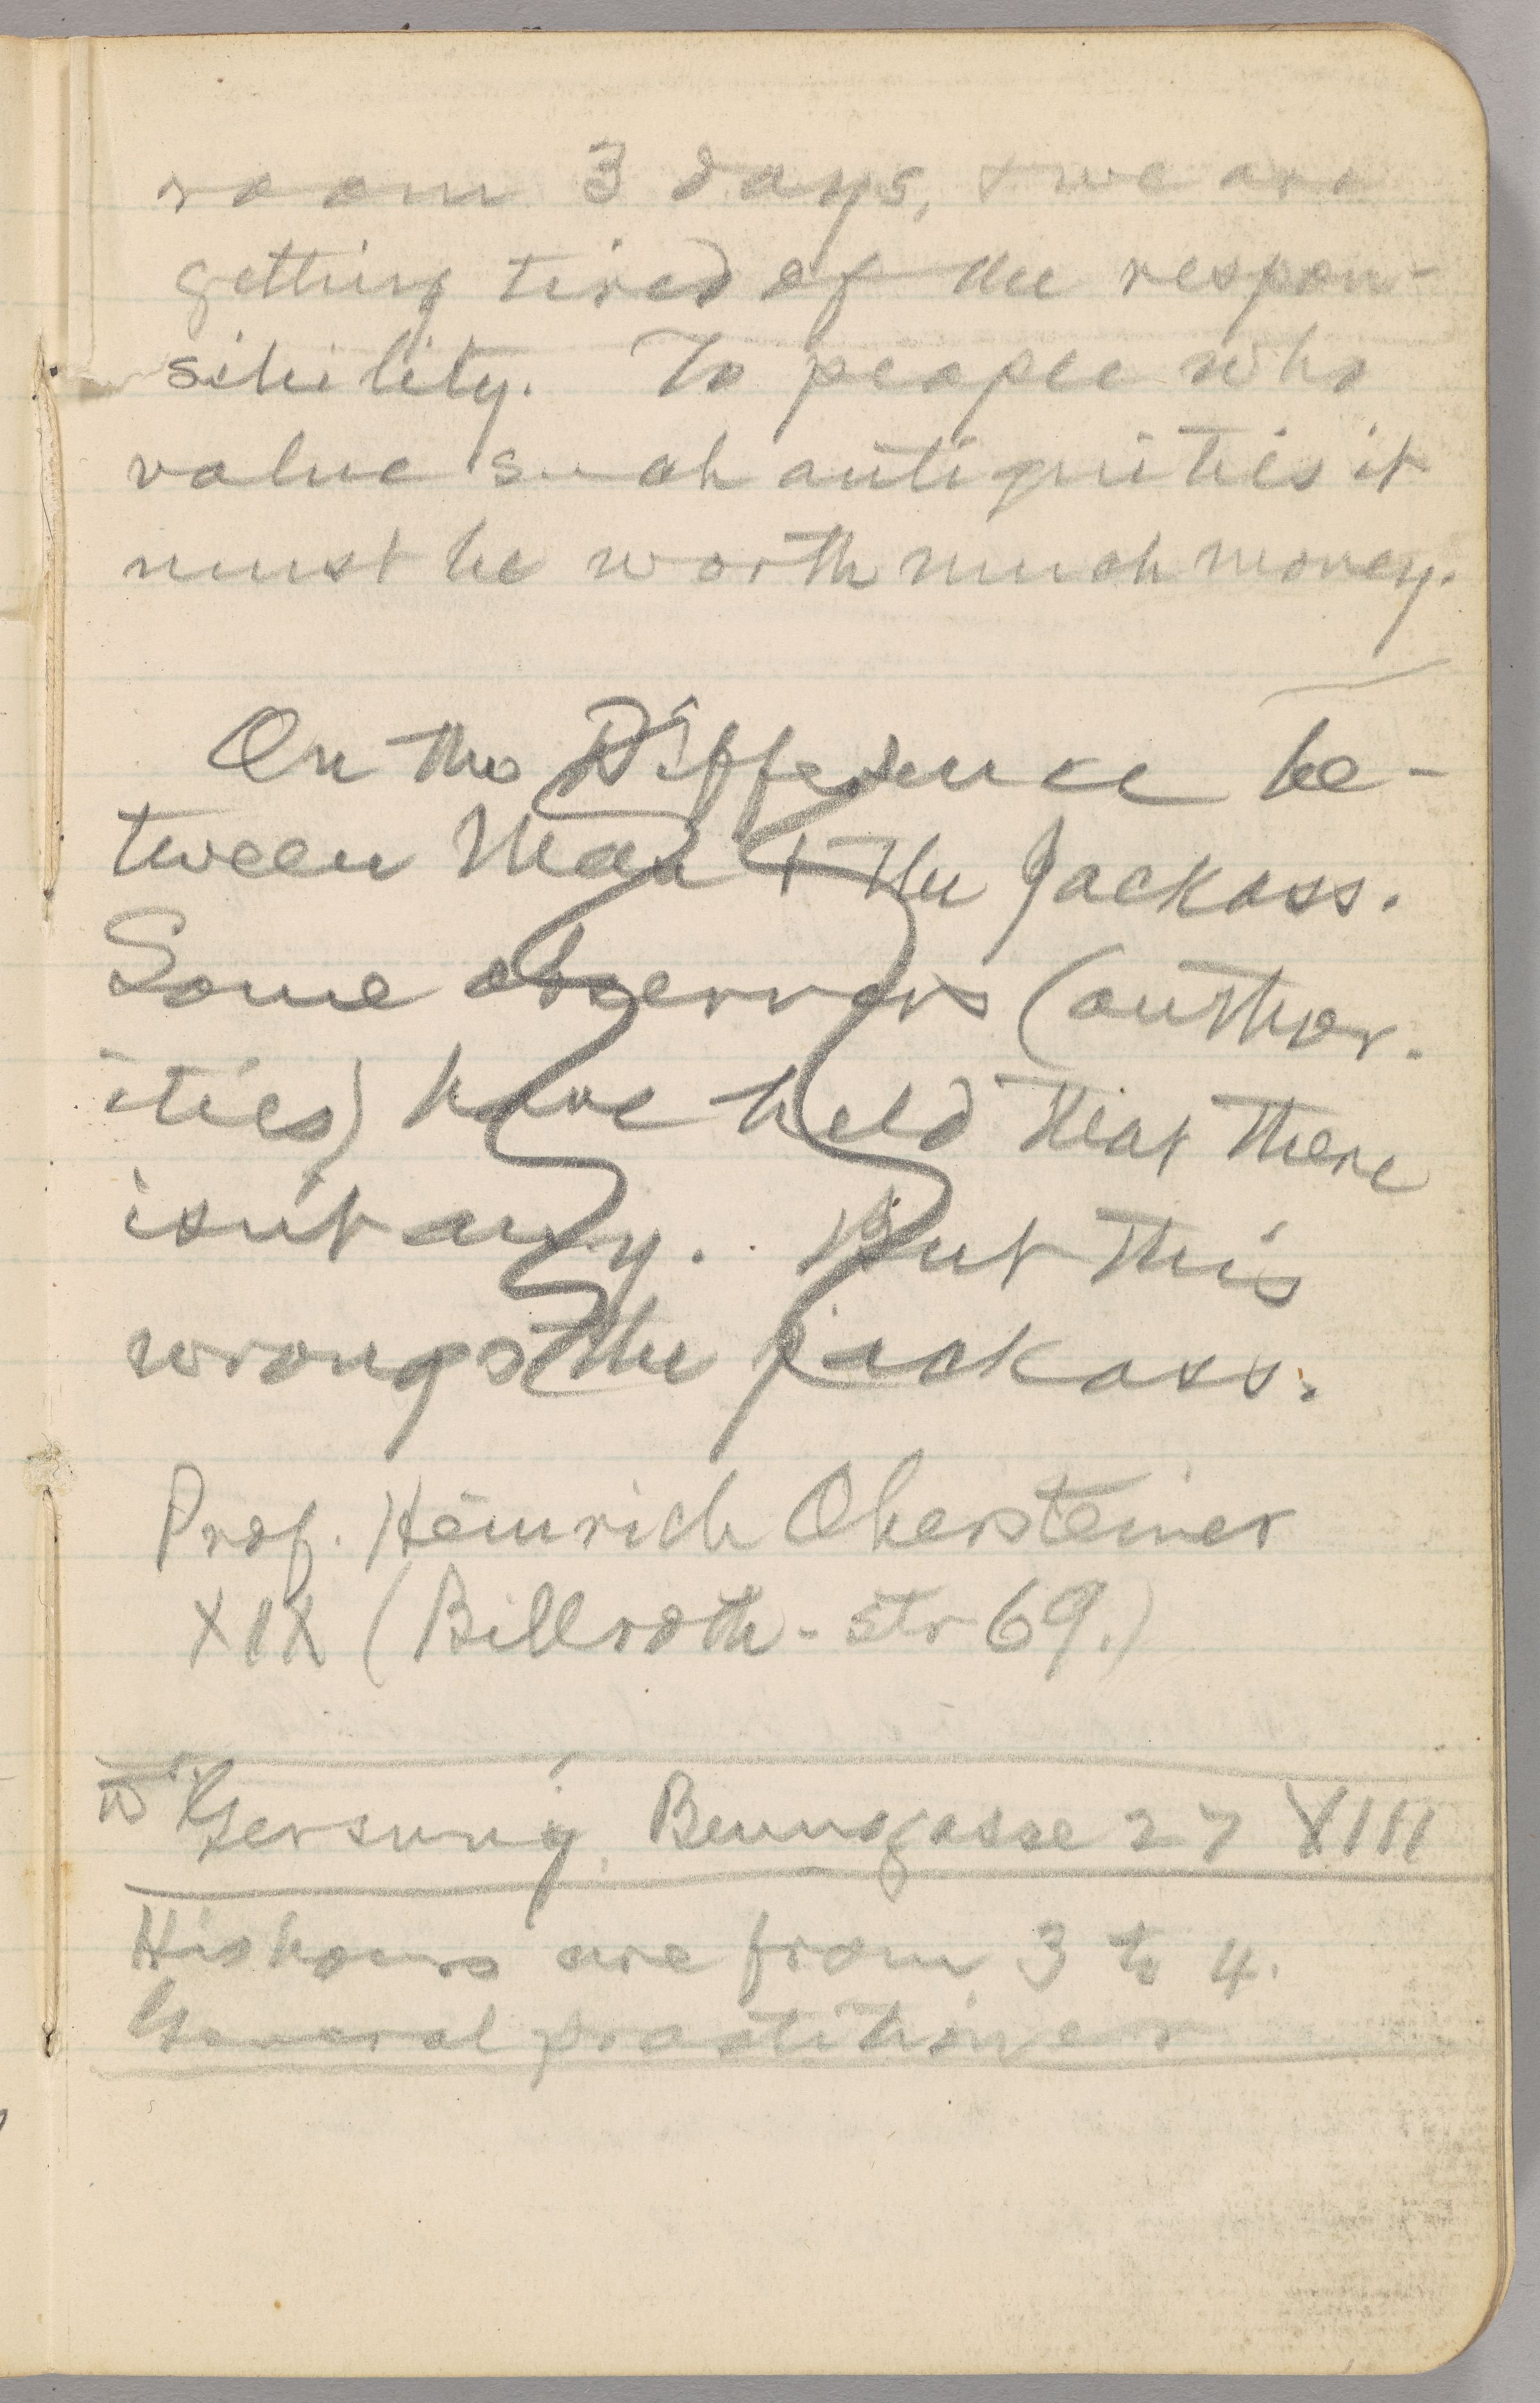 room 3 days, & we are
getting tired of the respon-
sibility. To people who
value such antiquities it
must be worth much money.
On the Difference be-
tween Man & the Jackass.
Some observers (author-
ities) have held that there
isn't any. But this
wrongs the jackass.
Prof. Heinrich Obersteiner
XIX (Billroth-str 69.)
Dr Gersuny, Bennogasse 27 XIII
His hours are from 3 to 4.
General practitioner